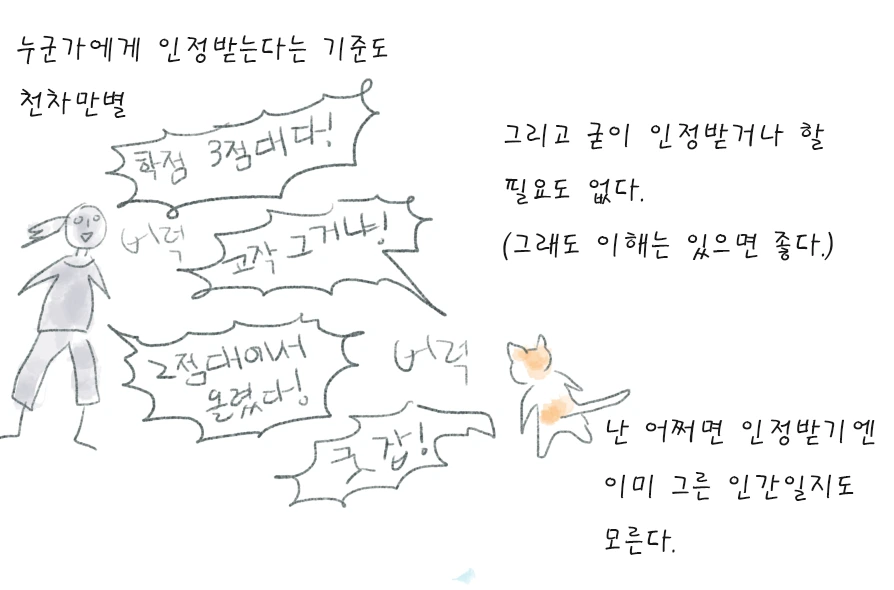 누군가에게 인정받는다는 기준도
천차만별
학점 3점대다!
버럭
고작 그거냐!
2점대에서
올렸다!
버럭
굿 갑!
그리고 굳이 인정받거나 할
필요도 없다.
(그래도 이해는 있으면 좋다.)
난 어쩌면 인정받기엔
이미 그른 인간일지도
모른다.